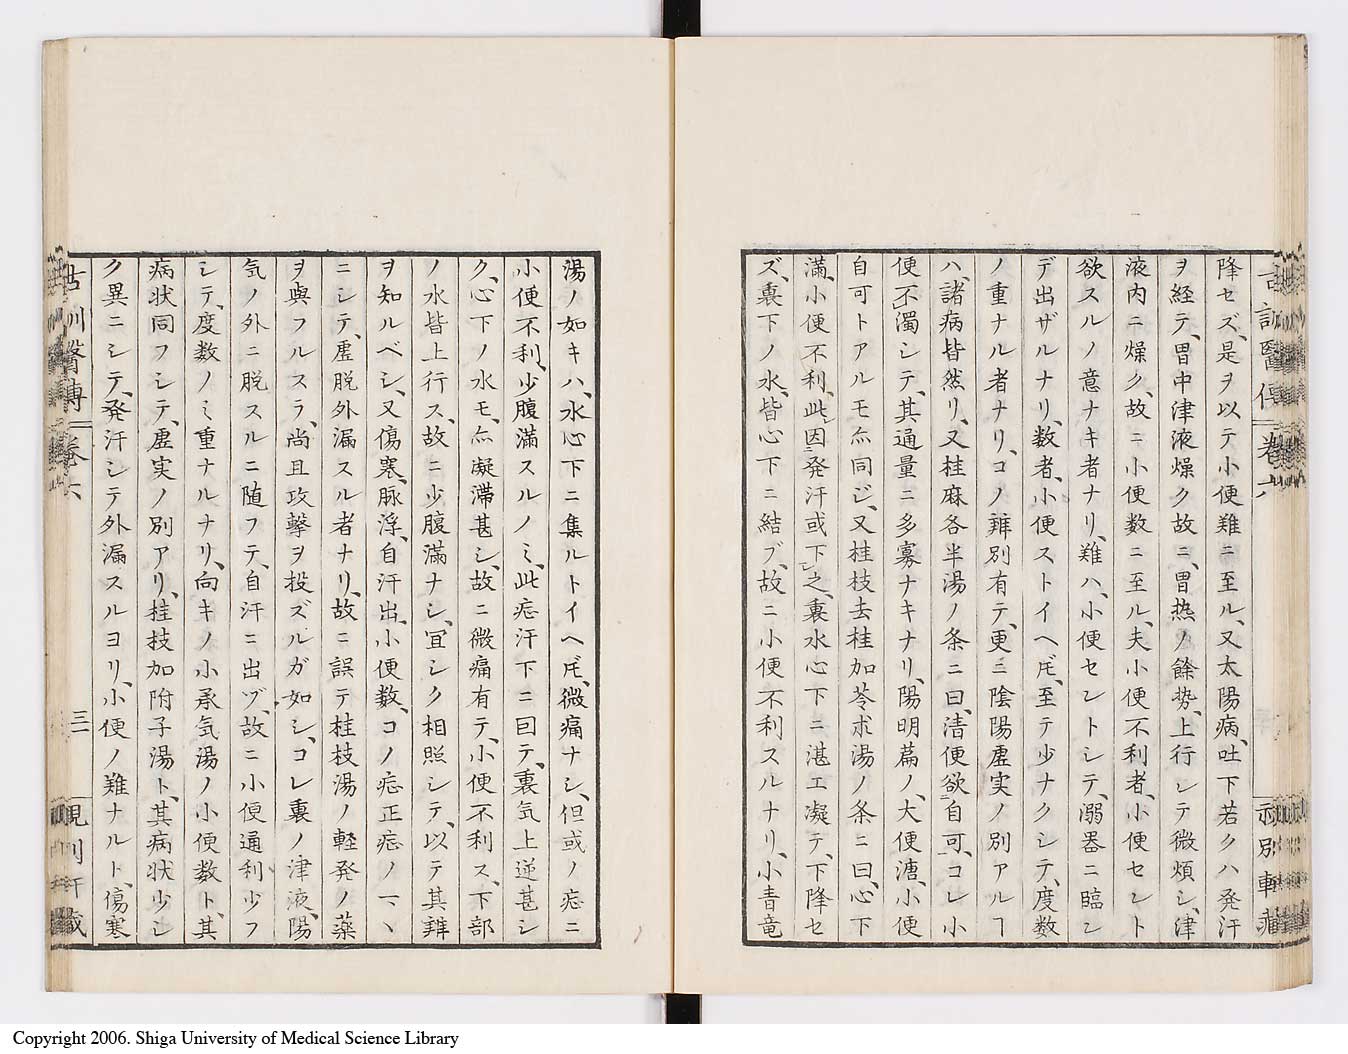 降セズ、是ヲ以テ小便難ニ至ル、又太陽病、吐下若クハ発汗
ヲ経テ、胃中津液燥ク故ニ、胃热ノ餘势、上行シテ微煩シ、津
液内ニ燥ク、故ニ小便数ニ至ル、夫小便不利者、小便セント
欲スルノ意ナキ者ナリ、難ハ、小便セントシテ、溺器ニ臨ン
デ出ザルナリ、数者、小便ストイヘ𪜈、至テ少ナクシテ、度数
ノ重ナル者ナリ、コノ辨別有テ、更ニ陰陽虚実ノ別アルヿ
ハ、諸病皆然リ、又桂麻各半湯ノ条ニ曰、清便欲自可、コレ小
便不濁シテ、其通量ニ多寡ナキナリ、陽明篇ノ、大便溏、小便
自可トアルモ亦同ジ、又桂枝去桂加苓朮湯ノ条ニ曰、心下
満、小便不利、此因発汗或下之、裏水心下ニ湛エ凝テ、下降セ
ズ、裏下ノ水、皆心下ニ結ブ、故ニ小便不利スルナリ、小青竜
湯ノ如キハ、水心下ニ集ルトイヘ𪜈、微痛ナシ、但或ノ症ニ
小便不利、少腹満スルノミ、此症汗下ニ曰テ、裏気上逆甚シ
ク、心下ノ水モ、亦凝滞甚シ、故ニ微痛有テ、小便不利ス、下部
ノ水皆上行ス、故ニ少腹満ナシ、宜シク相照シテ、以テ其辨
ヲ知ルベシ、又傷寒、脉浮、自汗出、小便数、コノ症正症ノマヽ
ニシテ、虚脱外漏スル者ナリ、故ニ誤テ桂枝湯ノ軽発ノ薬
ヲ與フルスラ、尚且攻撃ヲ投ズルガ如シ、コレ裏ノ津液、陽
気ノ外ニ脱スルニ随フテ、自汗ニ出ヅ、故ニ小便通利少フ
シテ、度数ノミ重ナルナリ、向キノ小承気湯ノ小便数ト、其
病状同フシテ、虚実ノ別アリ、桂枝加附子湯ト、其病状少シ
ク異ニシテ、発汗シテ外漏スルヨリ、小便ノ難ナルト、傷寒
三
Copyright 2006. Shiga University of Medical Science Library